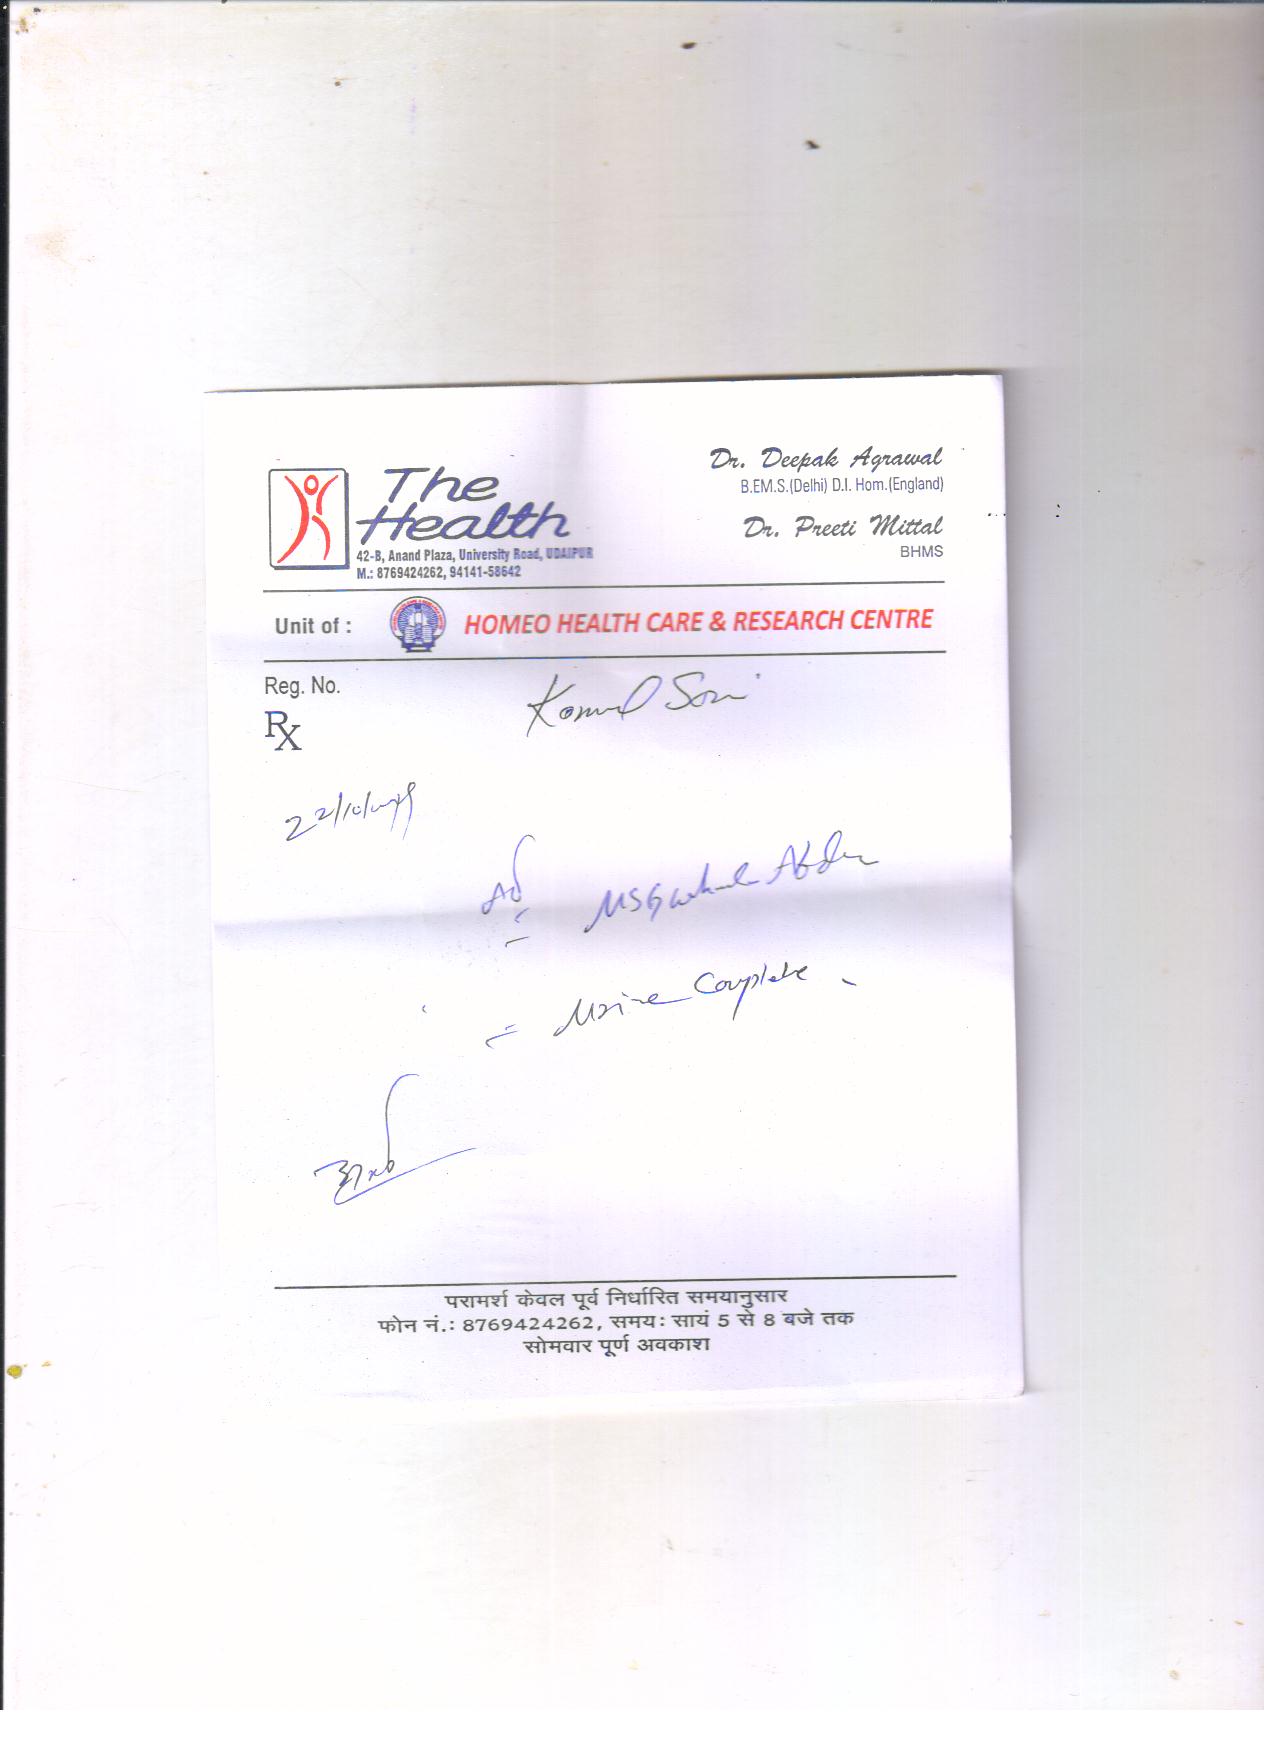 The
Health
42-B, Anand Plaza, University Road, UDAIPUR
M.: 8769424262, 94141-58642
Dr. Deepak Agrawal
B.EM.S.(Delhi) D.I. Hom.(England)
Dr. Preeti Mittal
BHMS
Unit of : HOMEO HEALTH CARE & RESEARCH CENTRE
Reg. No.
Komal Soni
Rx
22/10/
Ad
USG whole Abdn
Urine Complete
परामर्श केवल पूर्व निर्धारित समयानुसार
फोन नं.: 8769424262, समय: सायं 5 से 8 बजे तक
सोमवार पूर्ण अवकाश